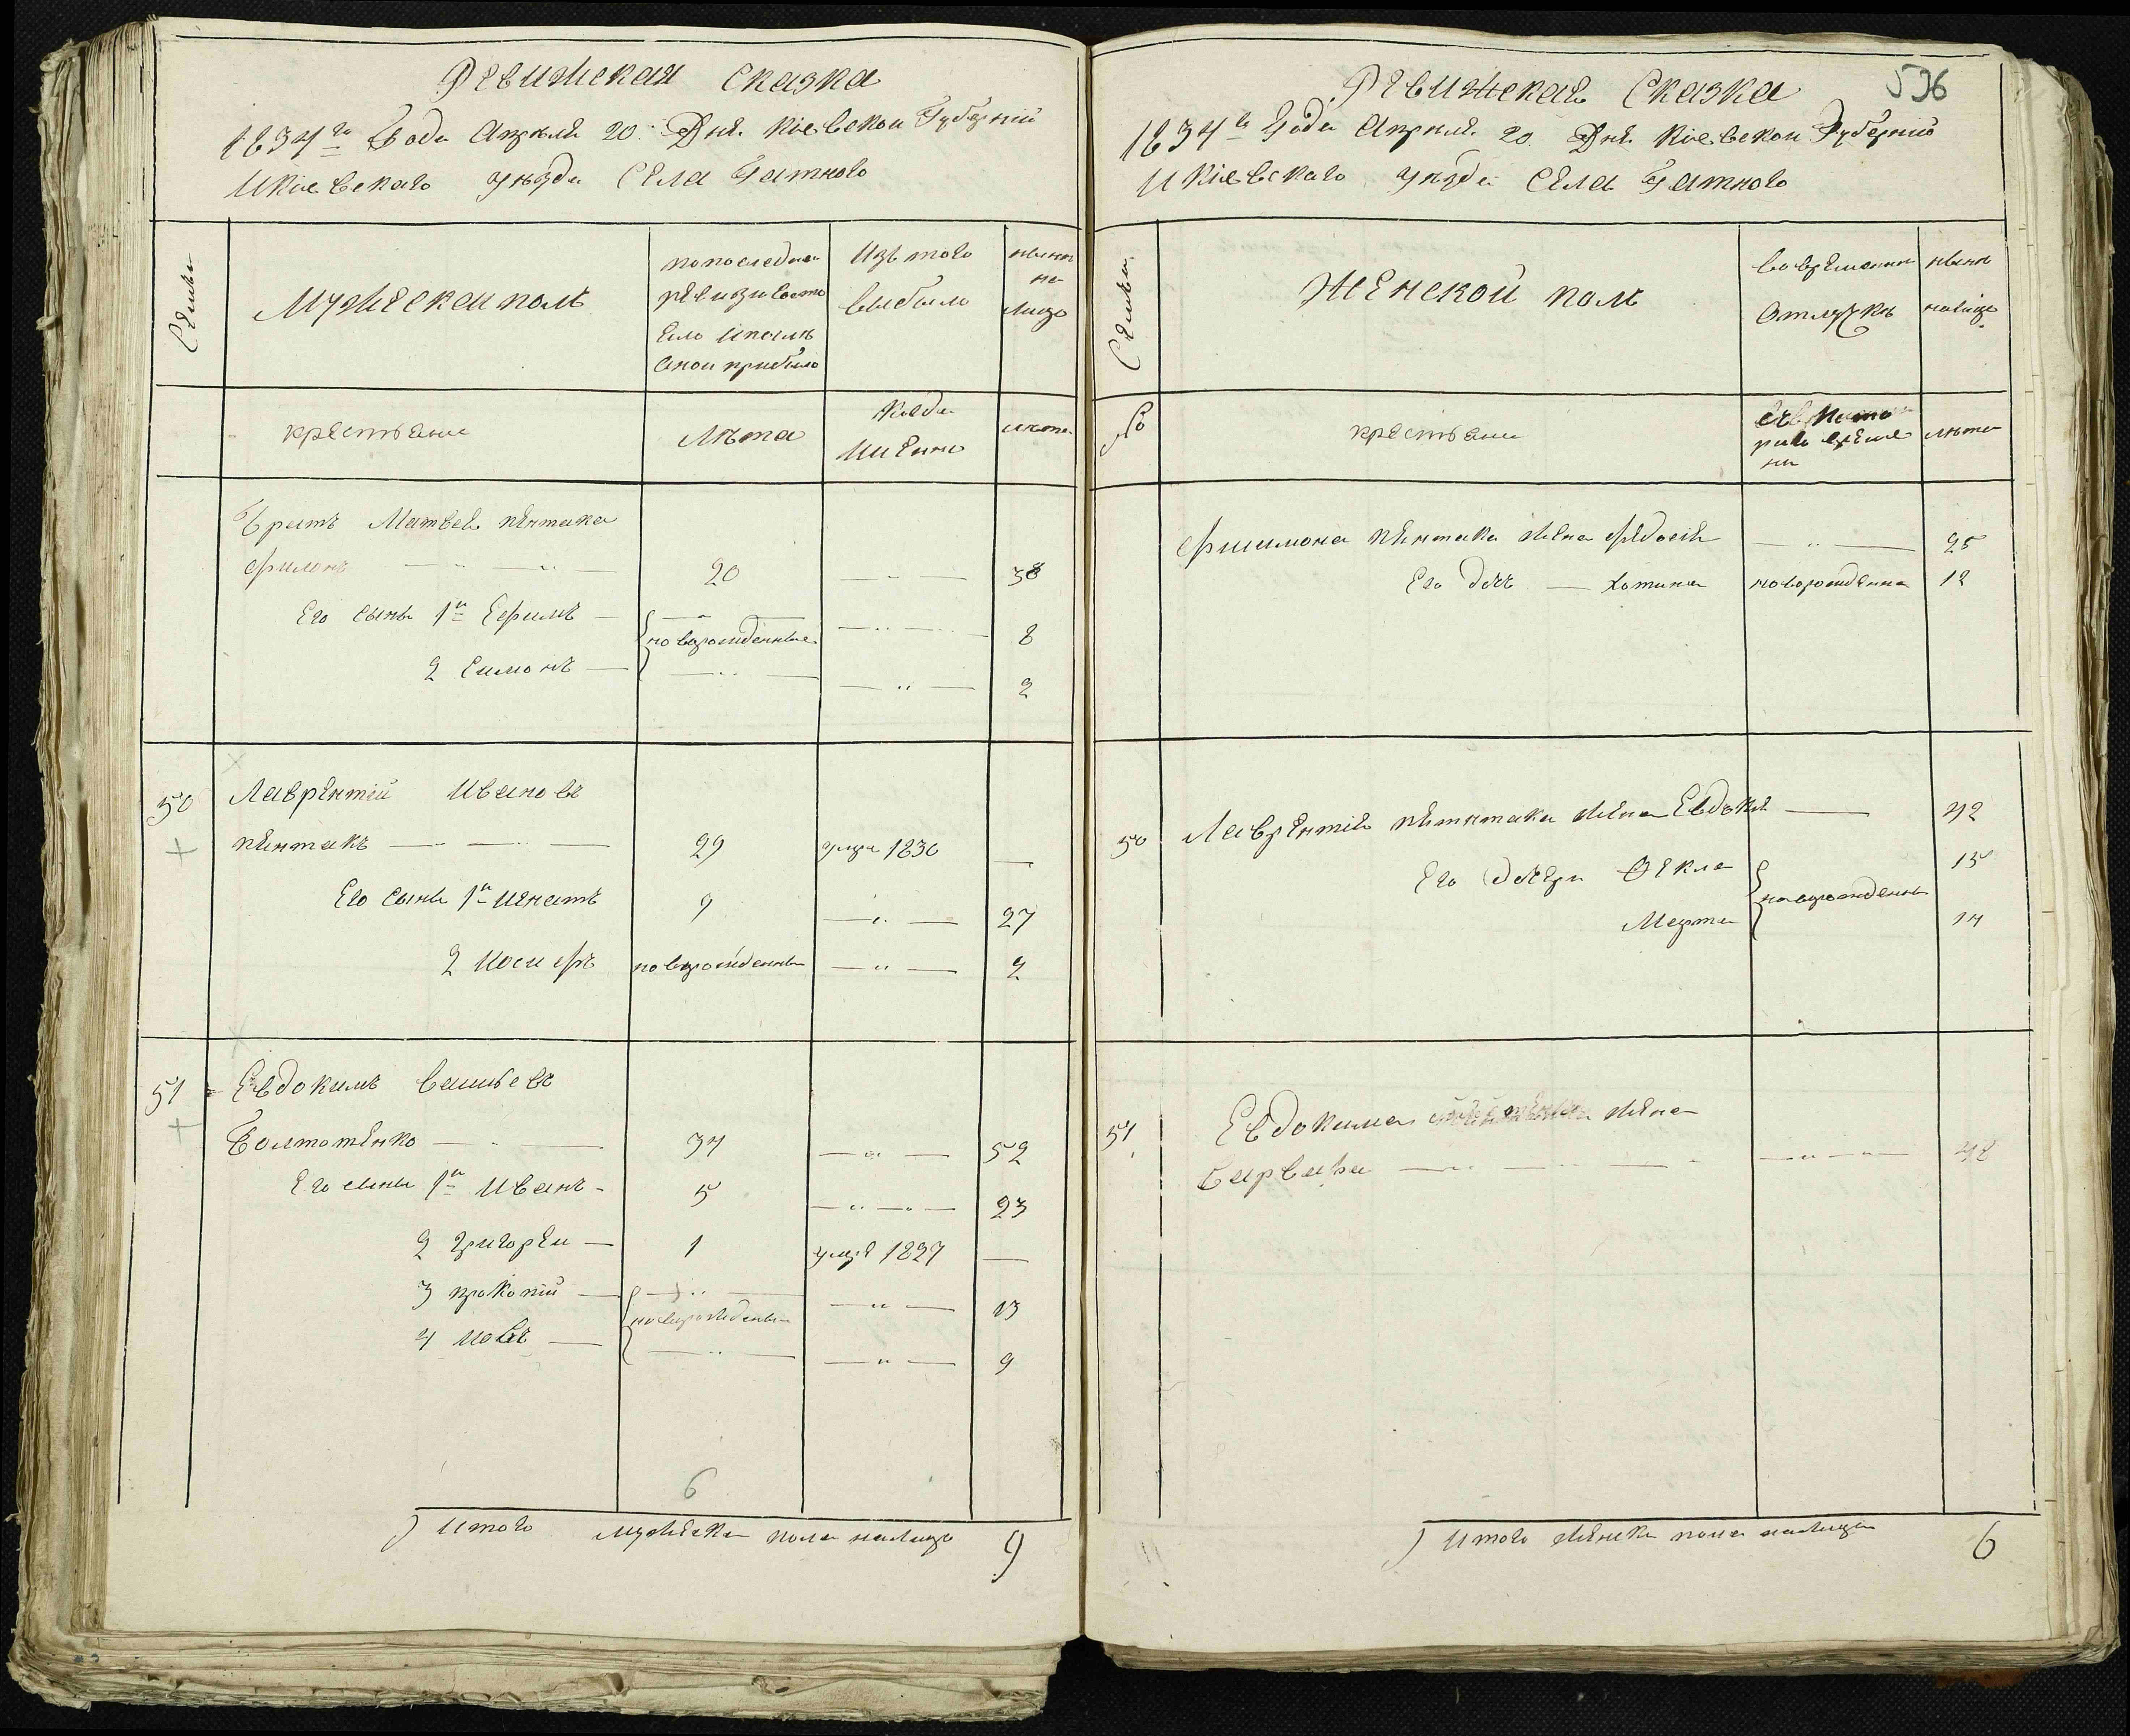 Ревижская сказка
1834го Года Апреля 20. Дня Киевской Губернии
и Киевскаго уезда Села Гатного
Семьи
Мужеской полъ
по последней
ревизии состо
яло и после
оной прибыло
Изъ того
выбыло
ныне
на
лицо
крестьяне
Лѣта
Когда
именно
лѣта
Братъ Матвея пентака
Филимонъ
20
38
Его сыны 1й Ефимъ
новорожденные
8
2 Симонъ
2
50
Лаврентий Ивановъ
пентакъ
29
умре 1830
Его сыны 1й Игнатъ
9
27
2 Иосифъ
новорожденный
2
51
Евдокимъ Васильевъ
Болтотенко
34
52
Его сыны 1й Иванъ
5
23
2 Григорей
1
умре 1827
3 прокопий
новорожденные
13
4 Иовъ
9
6
Итого мужеска пола налицо 9
536
Ревижская Сказка
1834го Года Апреля 20. Дня Киевской Губернии
и Киевскаго уезда Села Гатного
Семьи
Женской полъ
во временной
отлучкѣ
ныне
налицо
№
крестьяне
съ кото
раго време
ни
лѣта
Филимона пентака жена Федосия
25
Его дочь Хотина
новорожденна
12
50
Лаврентия пентака жена Евдокия
42
Его дочери Фекла
15
новорожденны
Марта
14
51
Евдокима жена
Варвара
48
Итого женска пола налицо 6